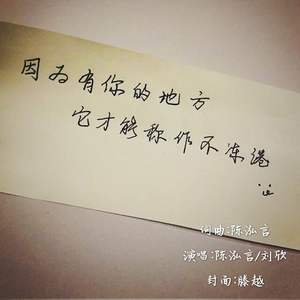 因为有你的地方
它才能称作不冻港
词曲:陈泓言
演唱:陈泓言/刘欣
封面:滕越